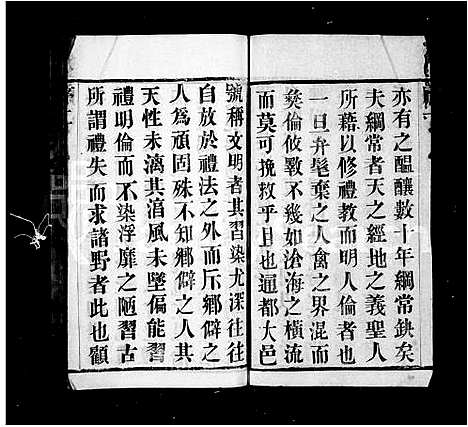 亦有之醞釀數十年綱常鈌矣
夫綱常者天之經地之義聖人
所藉以修禮教而明人倫者也
一旦弁髦棄之人禽之界混而
彝倫攸斁不幾如滄海之橫流
而莫可挽救乎且也通都大邑
號稱文明者其習染尤深往往
自放於禮法之外而斥鄉僻之
人為頑固殊不知鄉僻之人其
天性未漓其淳風未墜偏能習
禮明倫而不染浮靡之陋習古
所謂禮失而求諸野者此也顧